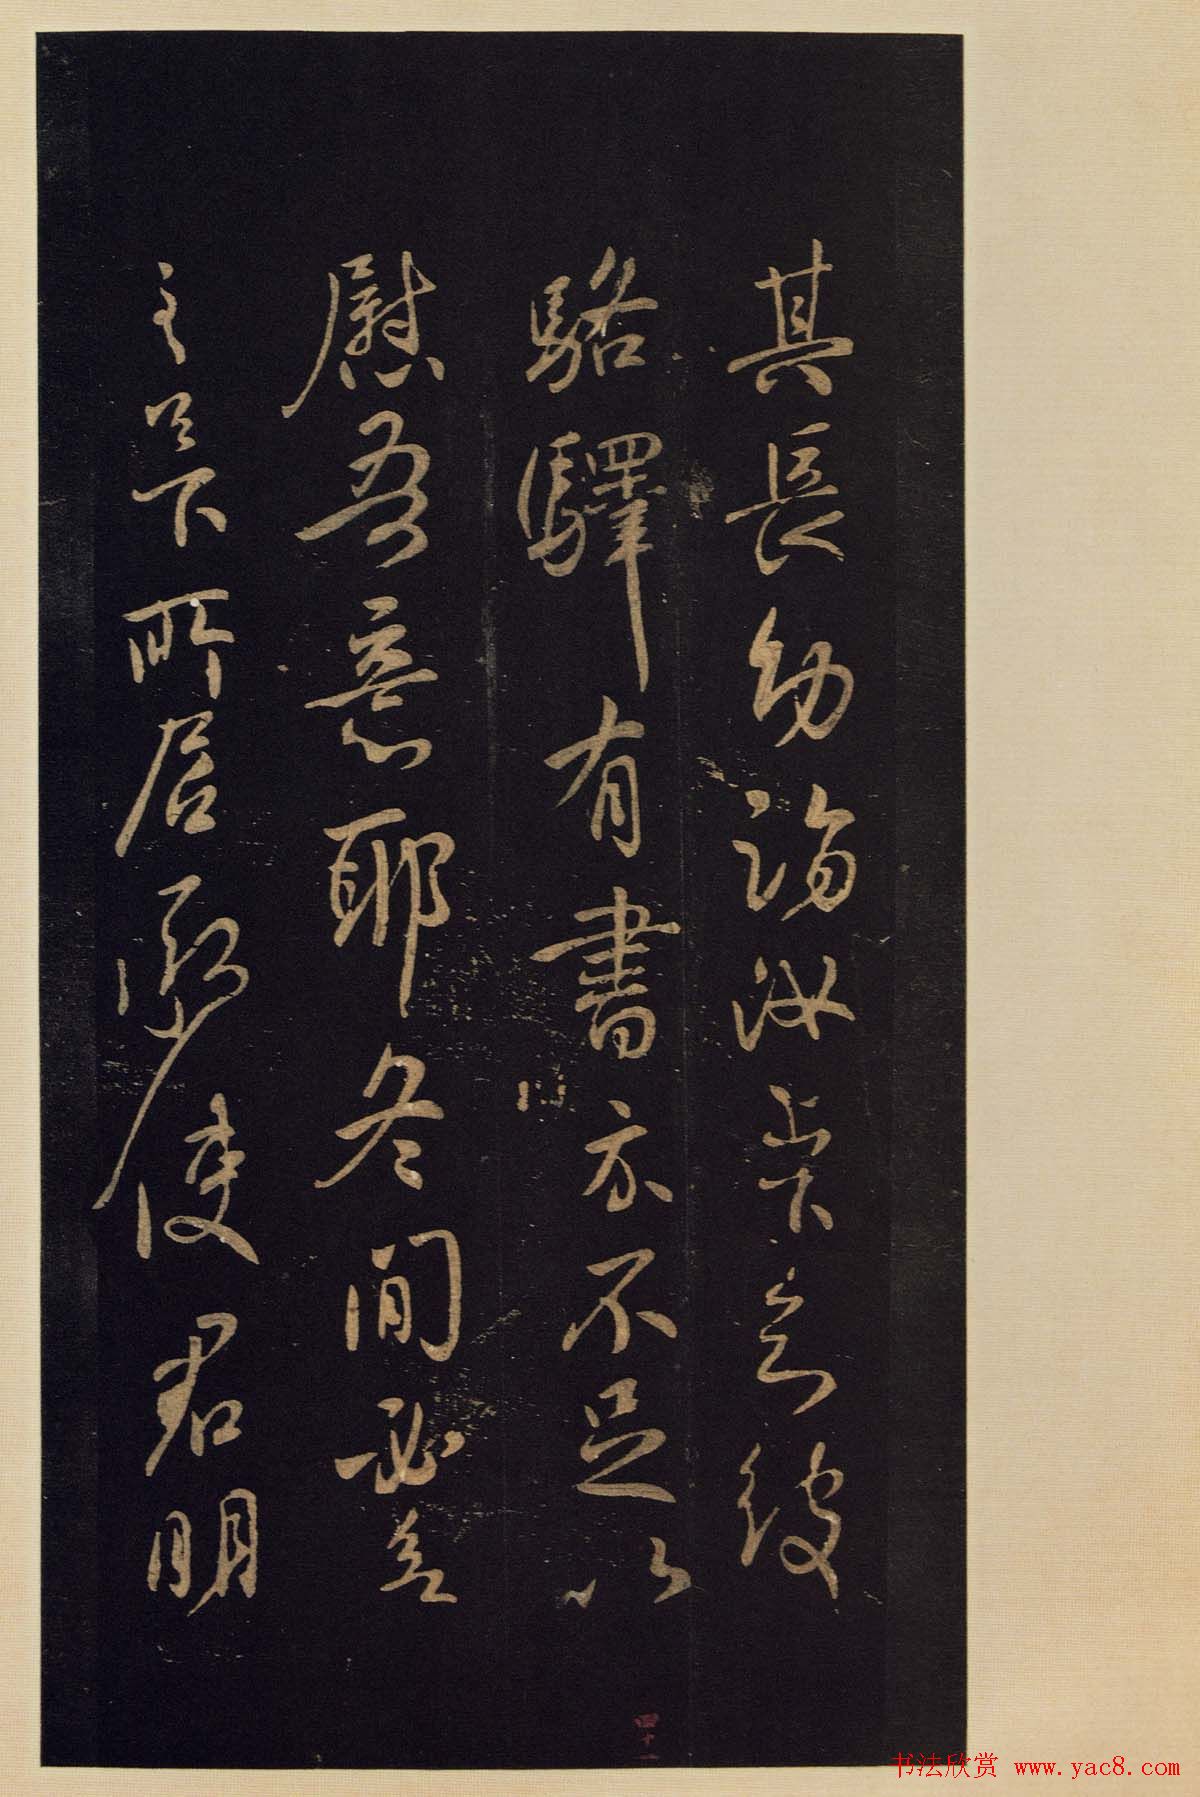 其長幼汝
駱驛有書亦不足以
慰吾意耶冬間必
下所居承使君明
四十一
书法欣赏 www.yac8.com